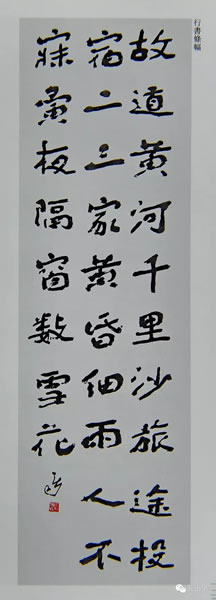 行書條幅
故道黄河千里沙旅途投
宿二三家黄昏細雨人不
寐夤夜隔窗数雪花